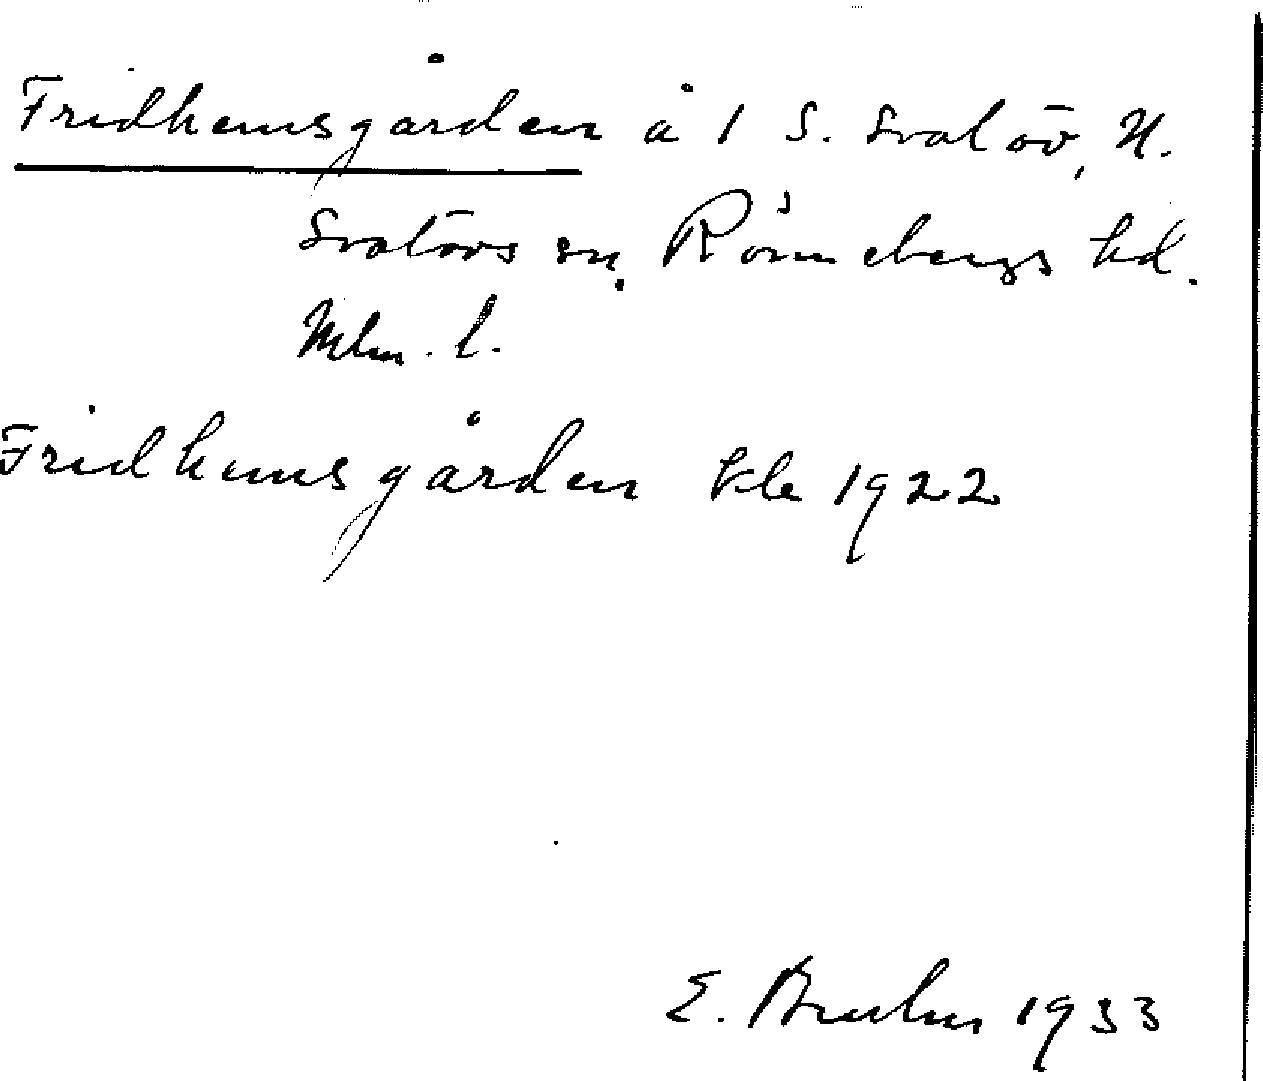 Fridhemsgården å 1 S. Svalöv, N.
Svalövs sn, Rönnebergs hd.
Mlm. l.
Fridhemsgården 1922
E. Bruhn 1933